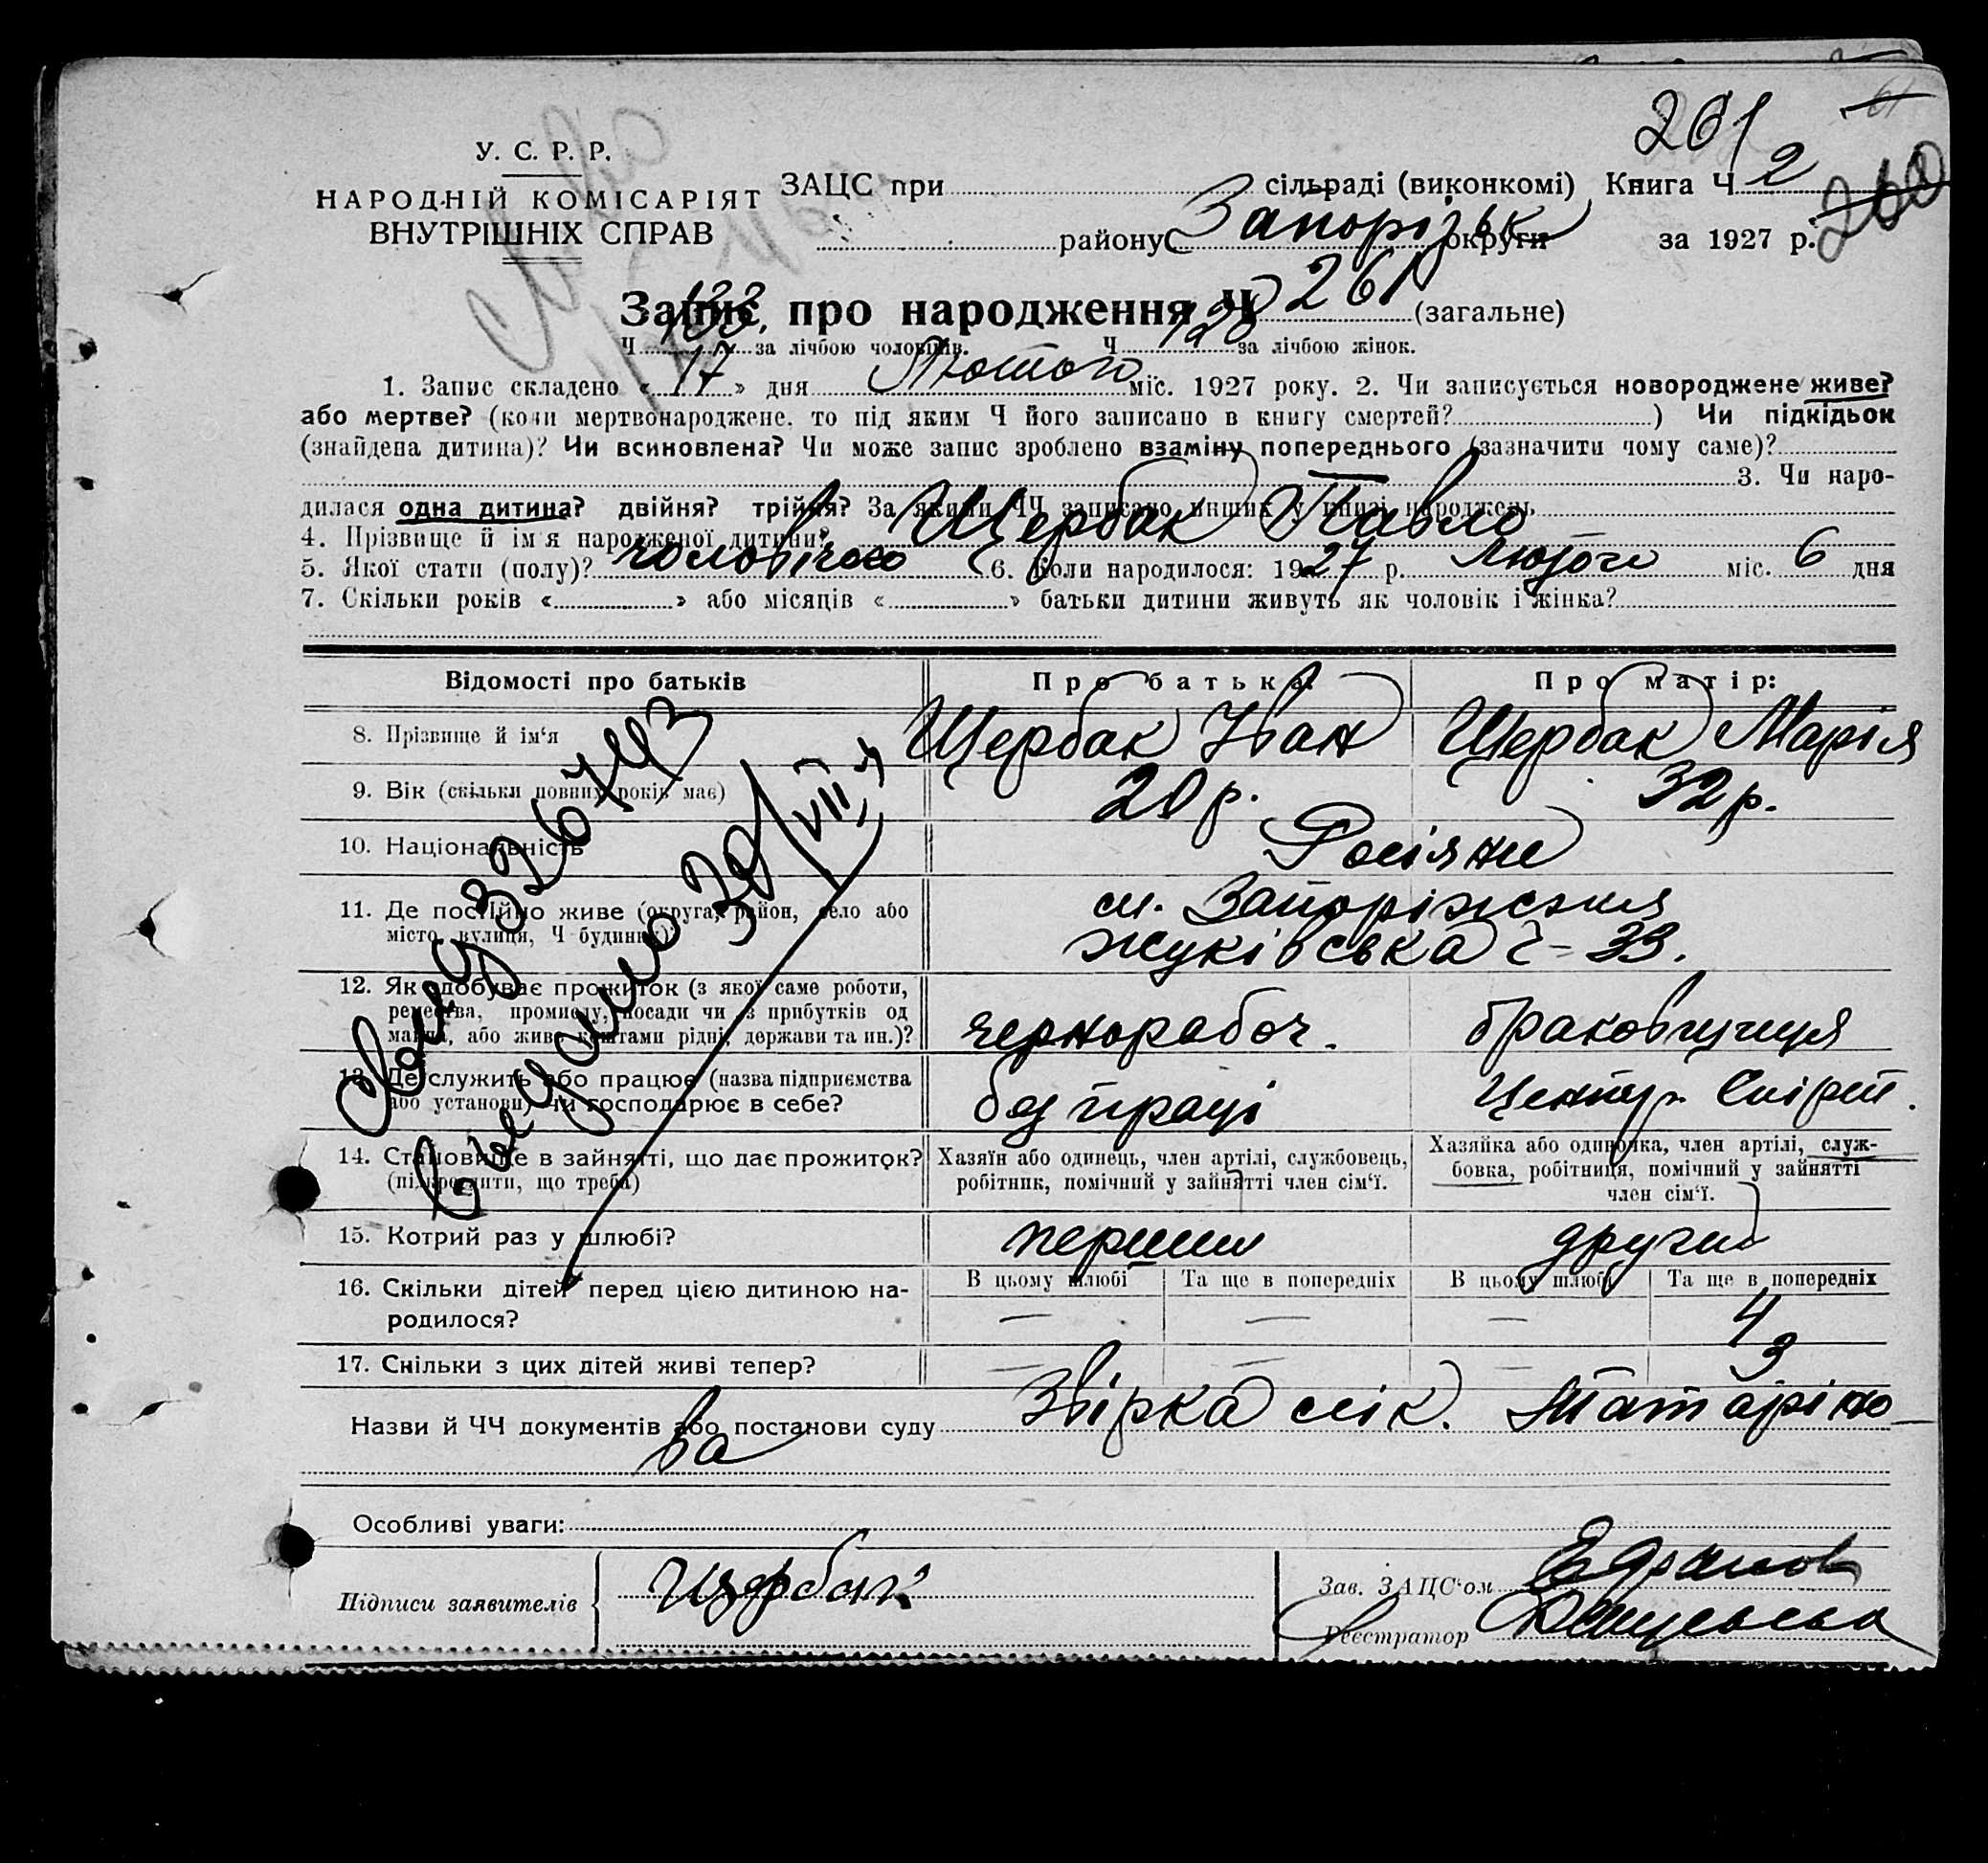 261
У. С. Р. Р.
НАРОДНІЙ КОМІСАРІЯТ
ВНУТРІШНІХ СПРАВ
ЗАЦС при сільраді (виконкомі) Книга Ч 2
260
району Запорізьк округи за 1927 р.
Запис про народження Ч 261 (загальне)
Ч 133 за лічбою чоловіків. Ч 128 за лічбою жінок.
1. Запис складено «17» дня Лютого міс. 1927 року. 2. Чи записується новороджене живе?
або мертве? (коли мертвонароджене, то під яким Ч його записано в книгу смертей? ) Чи підкідьок
(знайдена дитина)? Чи всиновлена? Чи може запис зроблено взаміну попереднього (зазначити чому саме)?
3. Чи наро-
дилася одна дитина? двійня? трійня? За якими ЧЧ записано инших у книзі народжень
4. Прізвище й ім'я народженої дитини? Щербак Павло
5. Якої стати (полу)? чоловічого 6. Коли народилося: 1927 р. Лютого міс. 6 дня
7. Скільки років « » або місяців « » батьки дитини живуть як чоловік і жінка?
Відомості про батьків Про батька: Про матір:
8. Прізвище й ім'я Щербак Іван Щербак Марія
9. Вік (скільки повних років має) 20 р. 32 р.
10. Національність Росіяни
11. Де постійно живе (округа, район, село або місто, вулиця, Ч будинку)? м. Запоріжжя
Жуківська ч - 33.
12. Як здобуває прожиток (з якої саме роботи,
ремества, промислу, посади чи з прибутків од
майна, або живе коштами рідні, держави та ин.)? чернорабоч. браковщиця
13. Де служить або працює (назва підприємства
або установи) чи господарює в себе? без праці Центр. Спірт.
14. Становище в зайнятті, що дає прожиток?
(підкреслити, що треба)
Хазяїн або одинець, член артілі, службовець,
робітник, помічний у зайнятті член сім'ї.
Хазяйка або одиночка, член артілі, служ-
бовка, робітниця, помічний у зайнятті
член сім'ї.
15. Котрий раз у шлюбі? перший другий
В цьому шлюбі Та ще в попередніх В цьому шлюбі Та ще в попередніх
16. Скільки дітей перед цією дитиною на-
родилося? — — — 4
17. Скільки з цих дітей живі тепер? — — — 3
Назви й ЧЧ документів або постанови суду Звірка лік. Татаріно-
ва
Особливі уваги:
Підписи заявителів Щербак
Зав. ЗАЦС'ом
Реєстратор